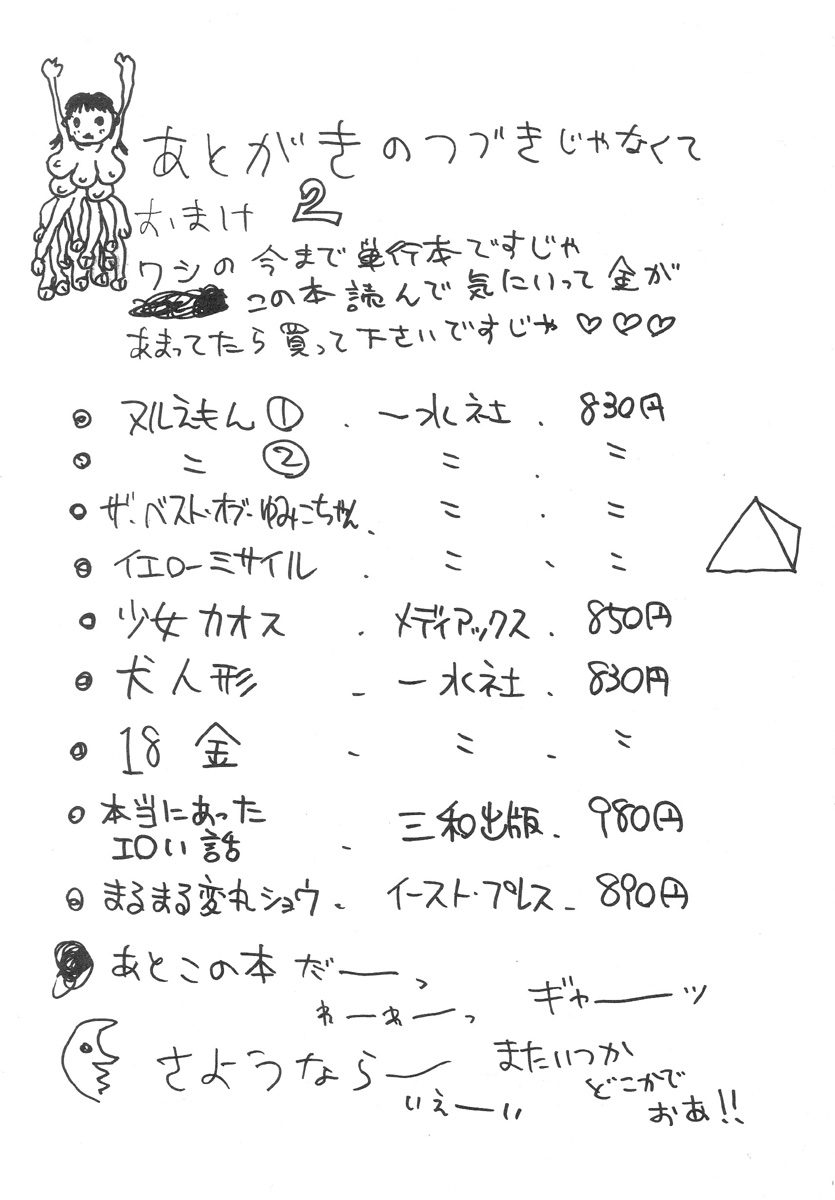 あとがきのつづきじゃなくて
おまけ 2
ワシの今まで単行本ですじゃ
この本読んで気にいって金が
あまってたら買って下さいですじゃ♡♡♡
◎ ヌルえもん① . 一水社 . 830円
◎ 〃 ② 〃 . 〃
◎ ザ・ベスト・オブ・ゆみこちゃん . 〃 . 〃
◎ イエローミサイル . 〃 . 〃
◎ 少女カオス . メディアックス . 850円
◎ 犬人形 . 一水社 . 830円
◎ 18金 . 〃 . 〃
◎ 本当にあった
エロい話 . 三和出版 . 980円
◎ まるまる変丸ショウ . イースト・プレス . 890円
● あとこの本だーっ
わーわーっ
ギャーッ
さようならー
いえーい
またいつか
どこかで
おあ!!